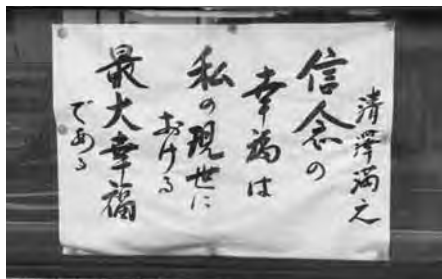 清澤満之
信念の
幸福は
私の現世に
おける
最大幸福
である